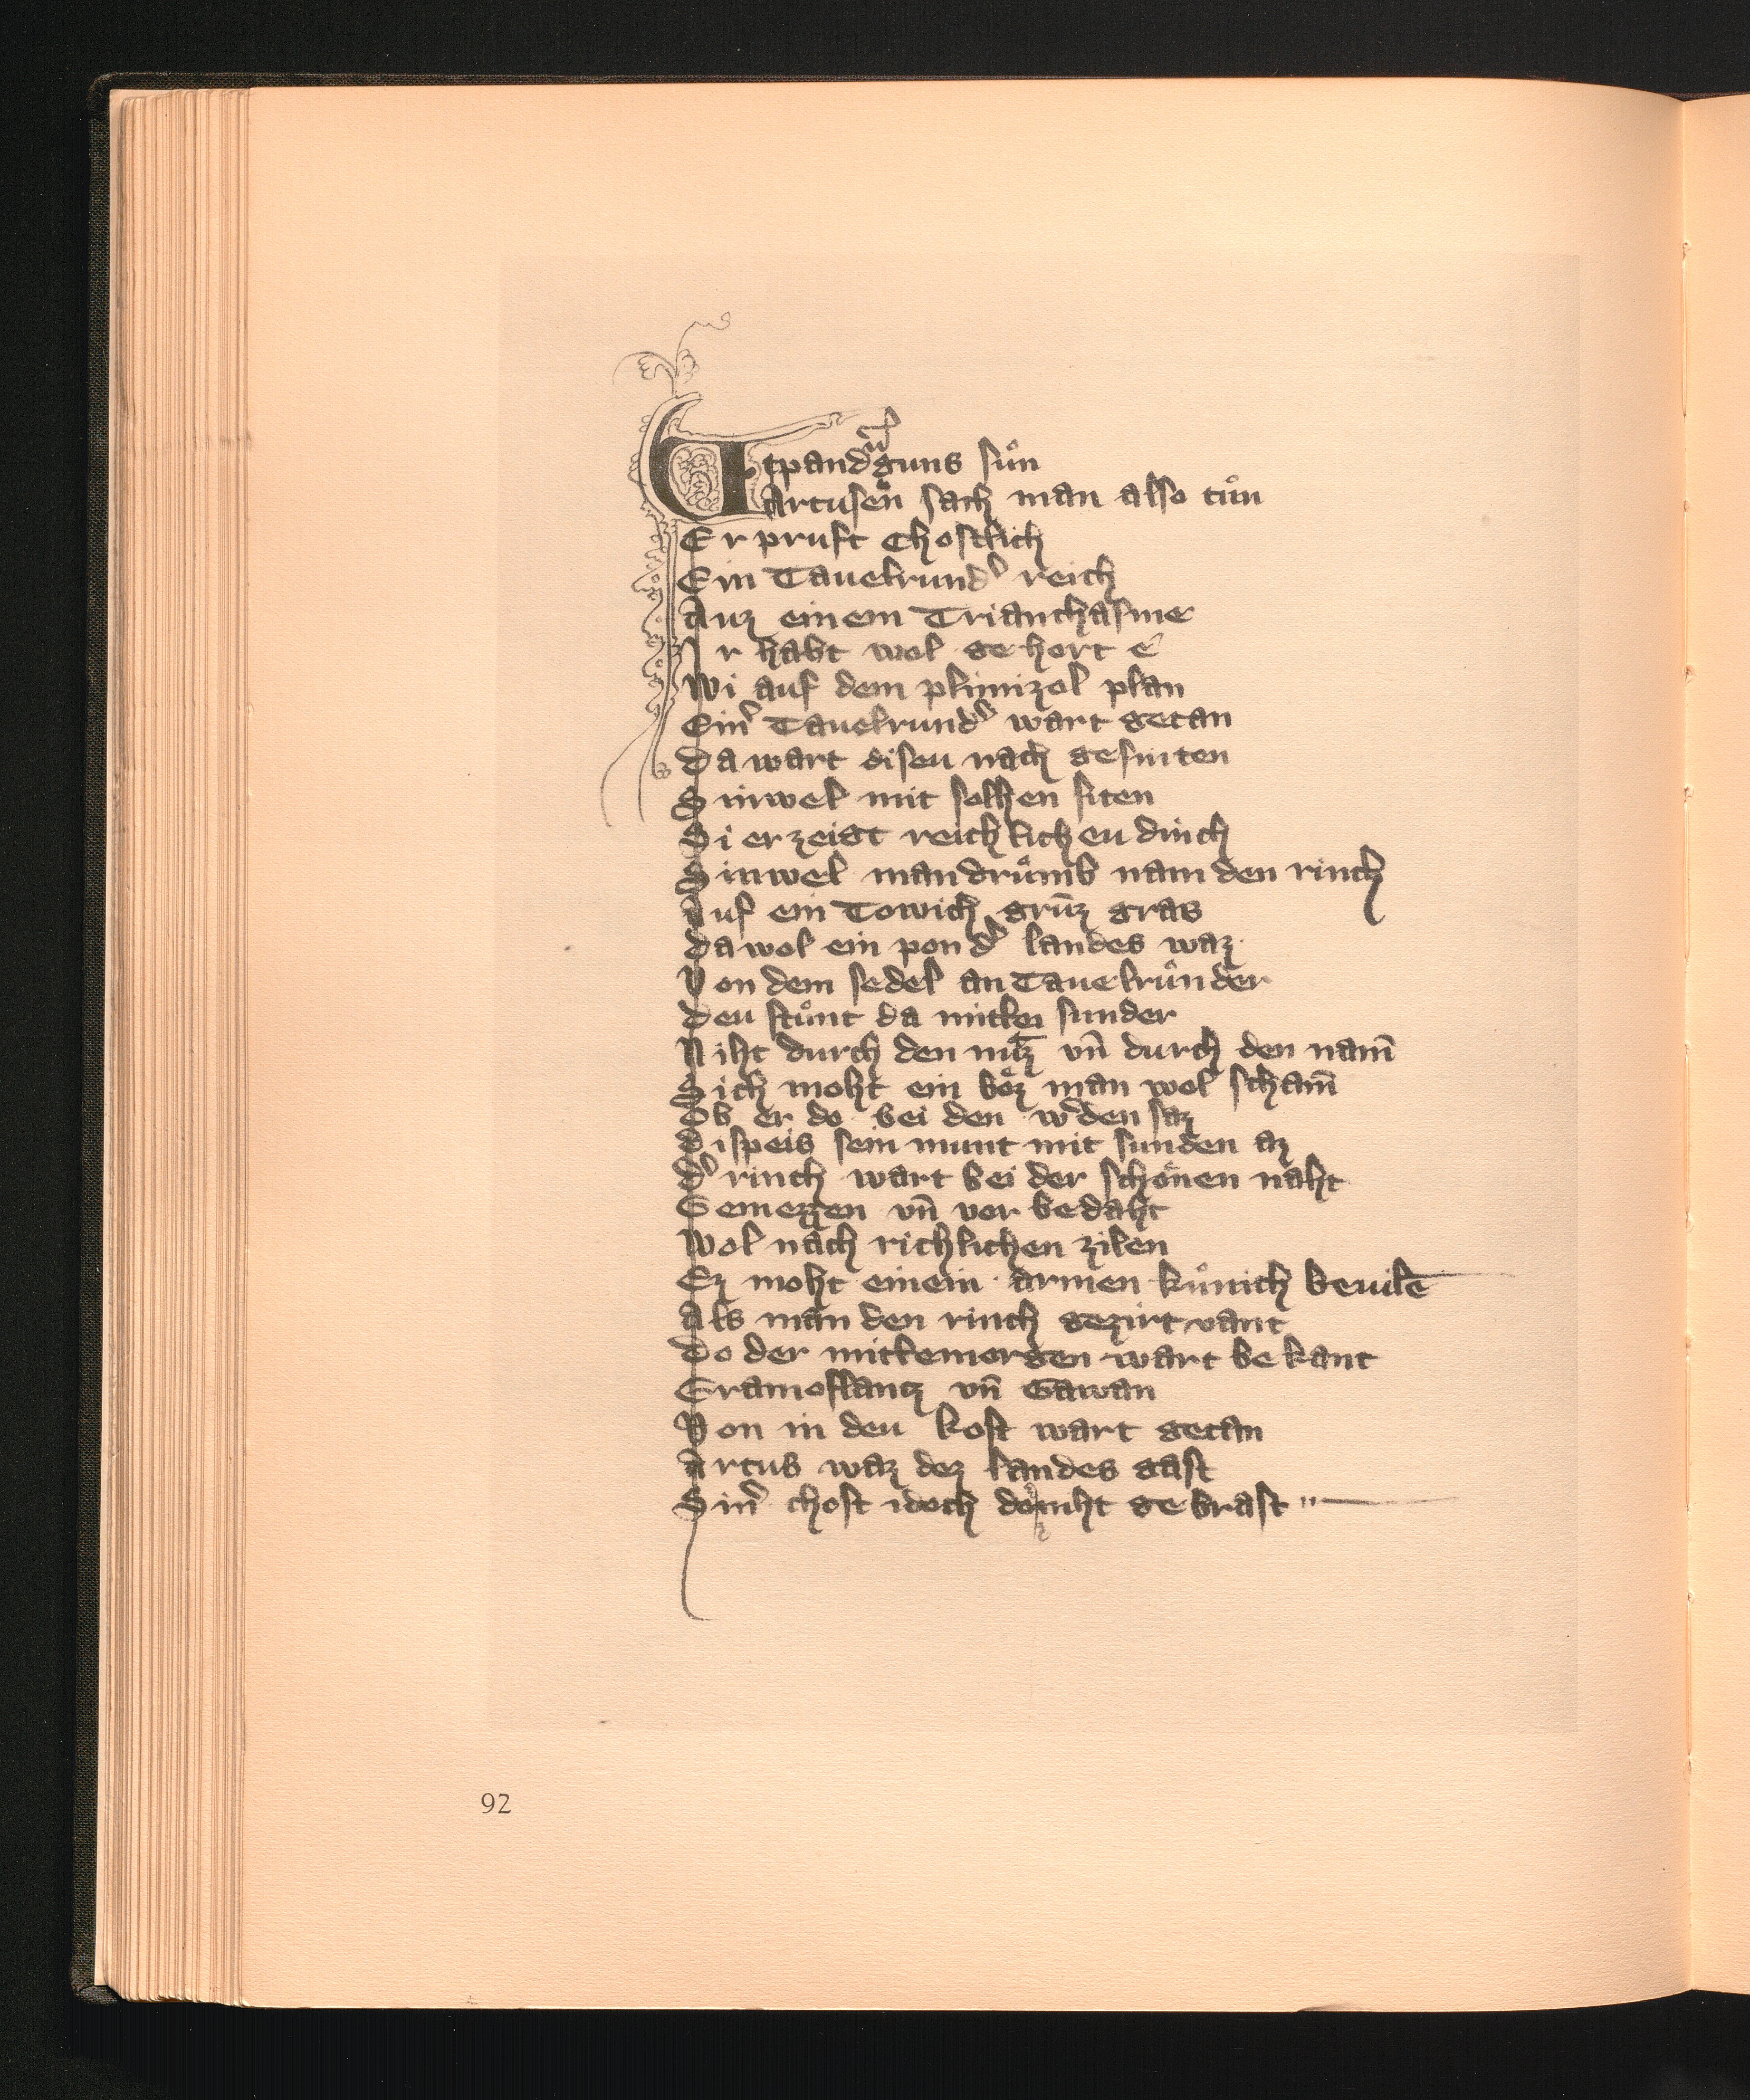 Vtpandᵉguns sůn
Artusen sach man also tůn
Er pruft chostlich
Ein Tauelrundᵉ reich
Auz einem Trianthasme
Ir habt wol gehort e
Wi auf dem plimizol plan
Einᵉ Tauelrundᵉ wart getan
Da wart diseu nach gesniten
Sinwel mit solhen siten
Si erzeigt reichlicheu dinch
Sinwel mandrůmb nam den rinch
Auf ein Towich grůnz gras
Da wol ein pondᵉ landes waz
Von dem sedel an Tauelrůnder
Deu stůnt da mitten sunder
Niht durch den nutz vn̄ durch den nam̄
Sich moht ein bôz man wol scham̄
Ob er do bei den wᵉden saz
Di speis sein munt mit sunden az
Dᵉ rinch wart bei der schônen naht
Gemezzen vn̄ vor bedaht
Wol nach richlichen zilen
Ez moht einem armen kůnich beuilē
Als man den rinch gezirt vant
Do der mittemorgen wart bekant
Gramoflantz vn̄ Gawan
Von in deu kost wart getan
Artus waz dez landes gast
Sinᵉ chost idoch do niht gebrast
92